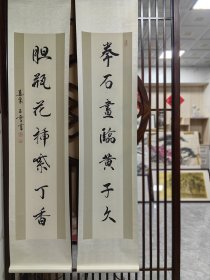 拳石画临黄子久
胆瓶花插紫丁香